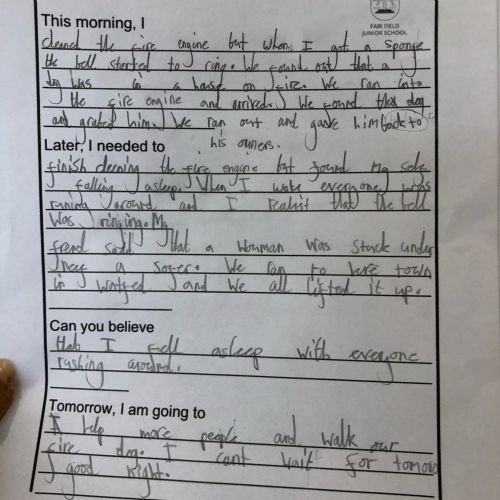 This morning, I
FAIR FIELD
JUNIOR SCHOOL
cleaned the fire engine but when I got a sponge
the bell started to ring. We found out that a
dog was in a house on fire. We ran into
the fire engine and arrived. We found the dog
and grabed him. We ran out and gave him back to
his owners.
Later, I needed to
finish cleening the fire engine but found my self
falling asleep. When I woke everyone was
runing around and I realisit that the bell
was ringing. My
frend said that a wouman was stuck under
a . We ran to town
in and we all lifted it up.
Can you believe
that I fell asleep with everyone
rushing around.
Tomorrow, I am going to
help more people and walk our
fire dog. I cant wait for
good night.